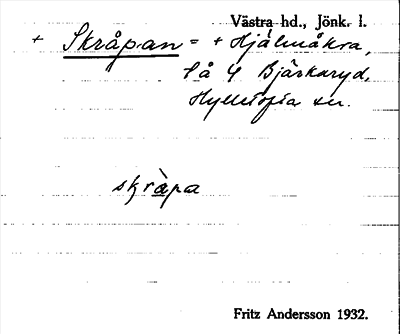 Västra hd., Jönk. l.
+ Skråpan = + Hjälmåkra,
få 4 Bjärkaryd,
Hylletofta sn.
skràpa
Fritz Andersson 1932.